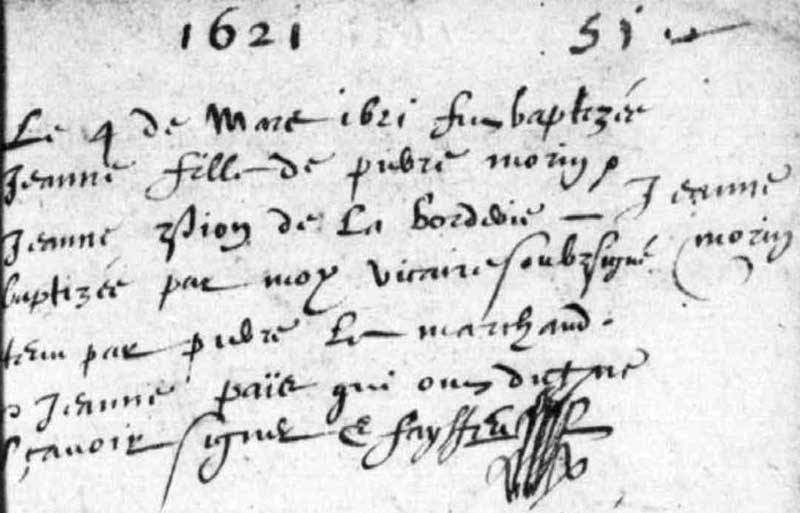 1621 51
Le 4 de Mars 1621 fut baptizée
Jeanne fille de pierre morin &
Jeanne de La borderie
Jeanne
morin
baptizée par moy vicaire soubzsigné
tenu par pierre Le marchand
& Jeanne qui ont dict ne
sçavoir signer